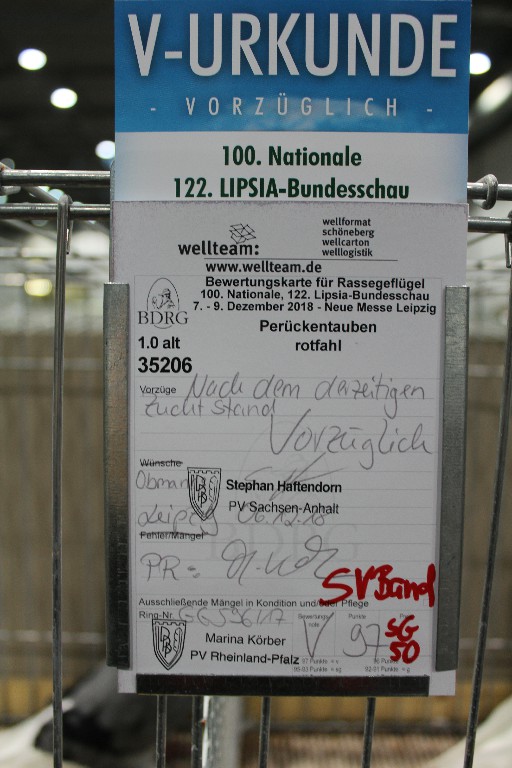 V-URKUNDE
- VORZÜGLICH -
100. Nationale
122. LIPSIA-Bundesschau
wellteam:
wellformat
schöneberg
wellcarton
welllogistik
www.wellteam.de
BDRG
Bewertungskarte für Rassegeflügel
100. Nationale, 122. Lipsia-Bundesschau
7. - 9. Dezember 2018 - Neue Messe Leipzig
Perückentauben
rotfahl
1.0 alt
35206
Vorzüge
Nach dem derzeitigen
Zuchtstand
Vorzüglich
Wünsche
Obmann
Stephan Haftendorn
PV Sachsen-Anhalt
Leipzig 06.12.18
Fehler/Mängel
PR =
SV Band
Ausschließende Mängel in Kondition und/oder Pflege
Ring-Nr.
Marina Körber
PV Rheinland-Pfalz
Bewertungs-
note
V
Punkte
97
SG
50